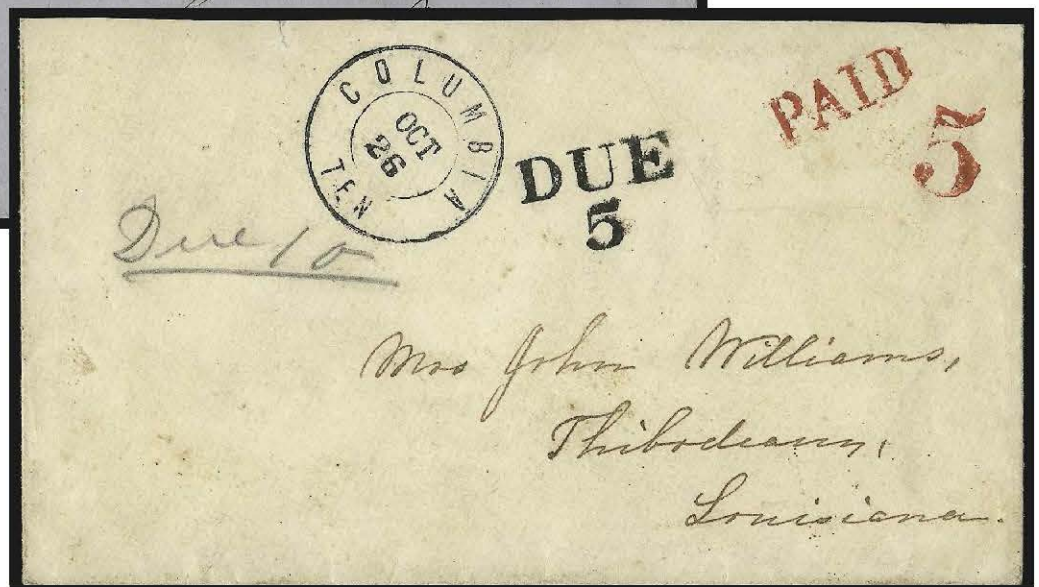 COLUMBIA
OCT
26
TEN
PAID
5
DUE
5
Due 10
Mrs John Williams,
Thibodeaux,
Louisiana.